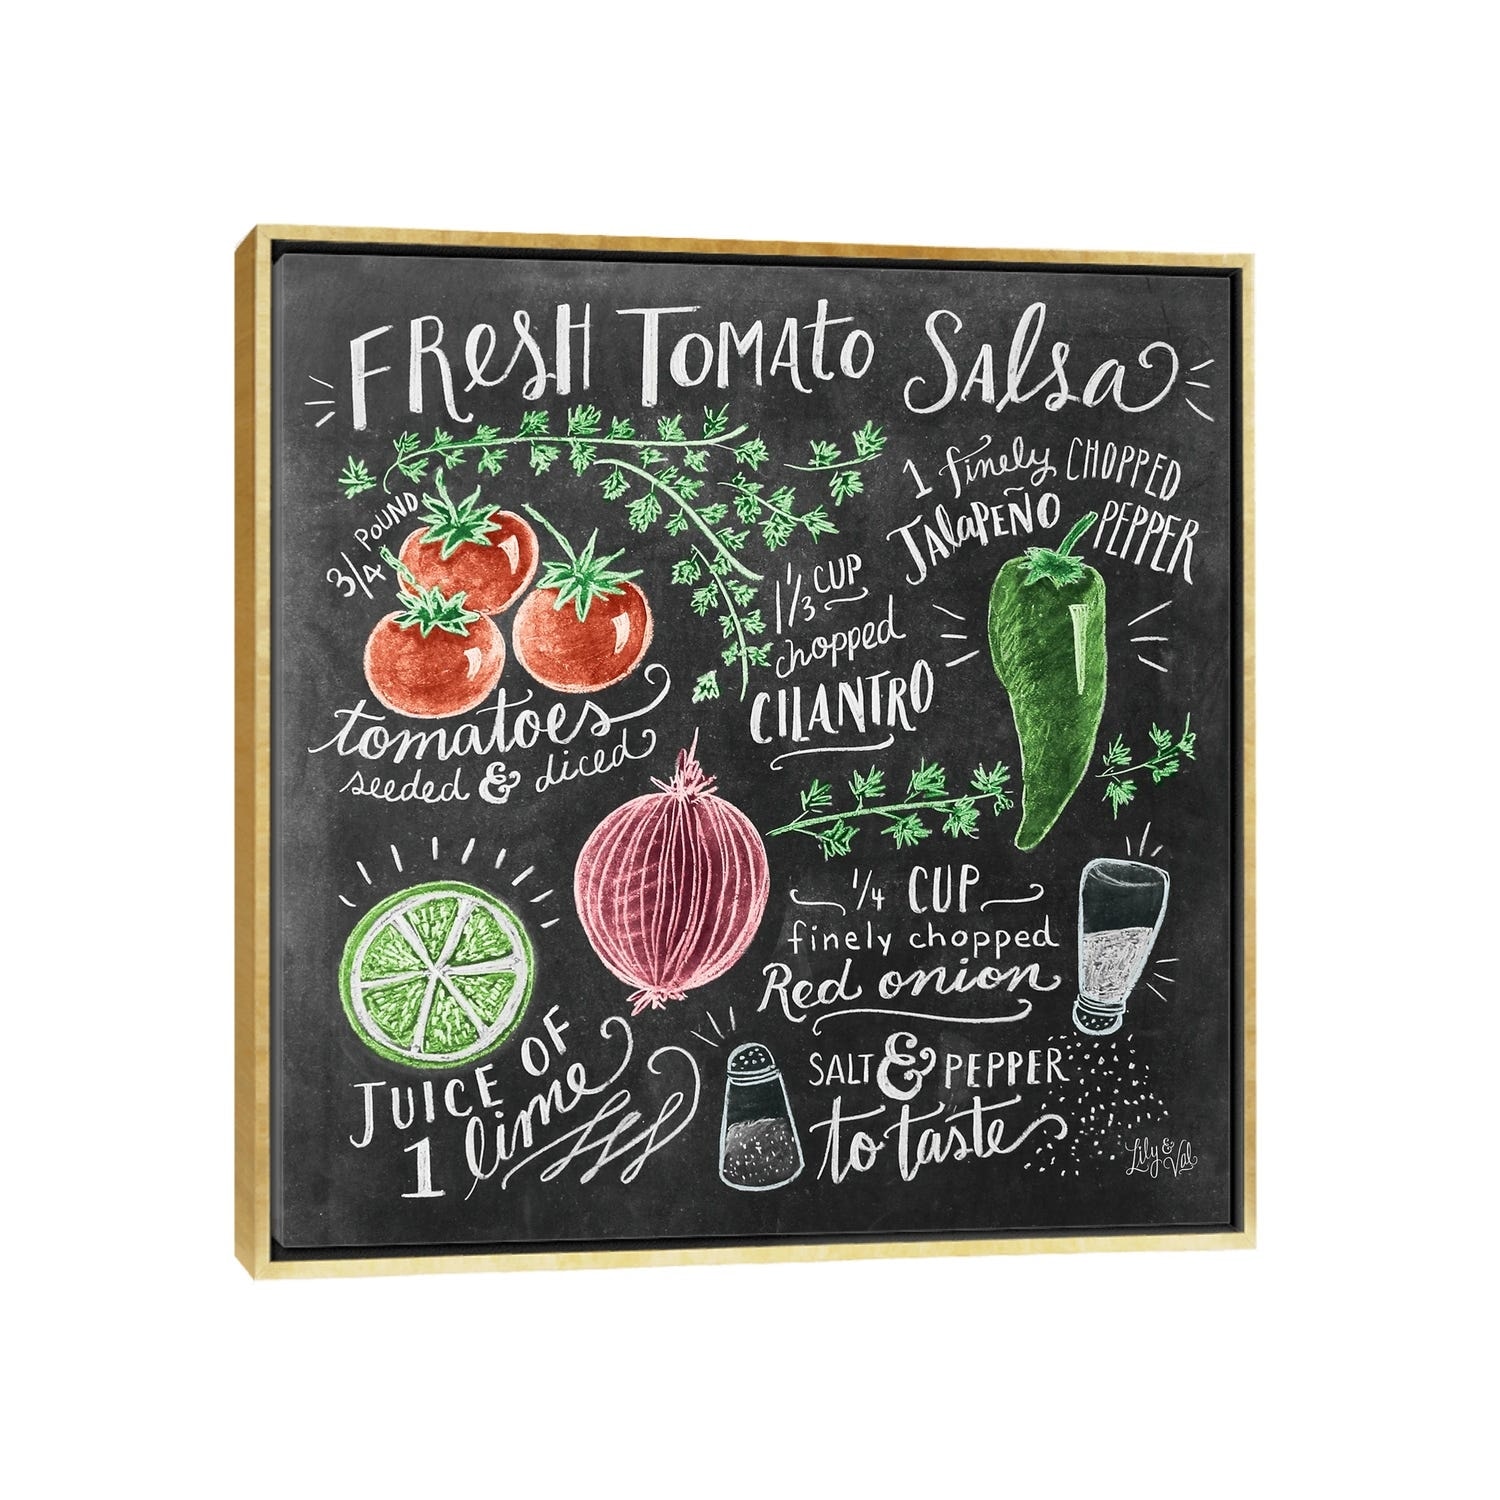 FResH TOMAto SAlsa
3/4 POUND
tomatoes
seeded & diced
1 finely CHOPPED
JAlaPEÑO PEPPER
1 1/3 CUP
chopped
CILANTRO
1/4 CUP
finely chopped
Red onion
JUICE OF
1 lime
SALT & PEPPER
to taste
Lily & Val